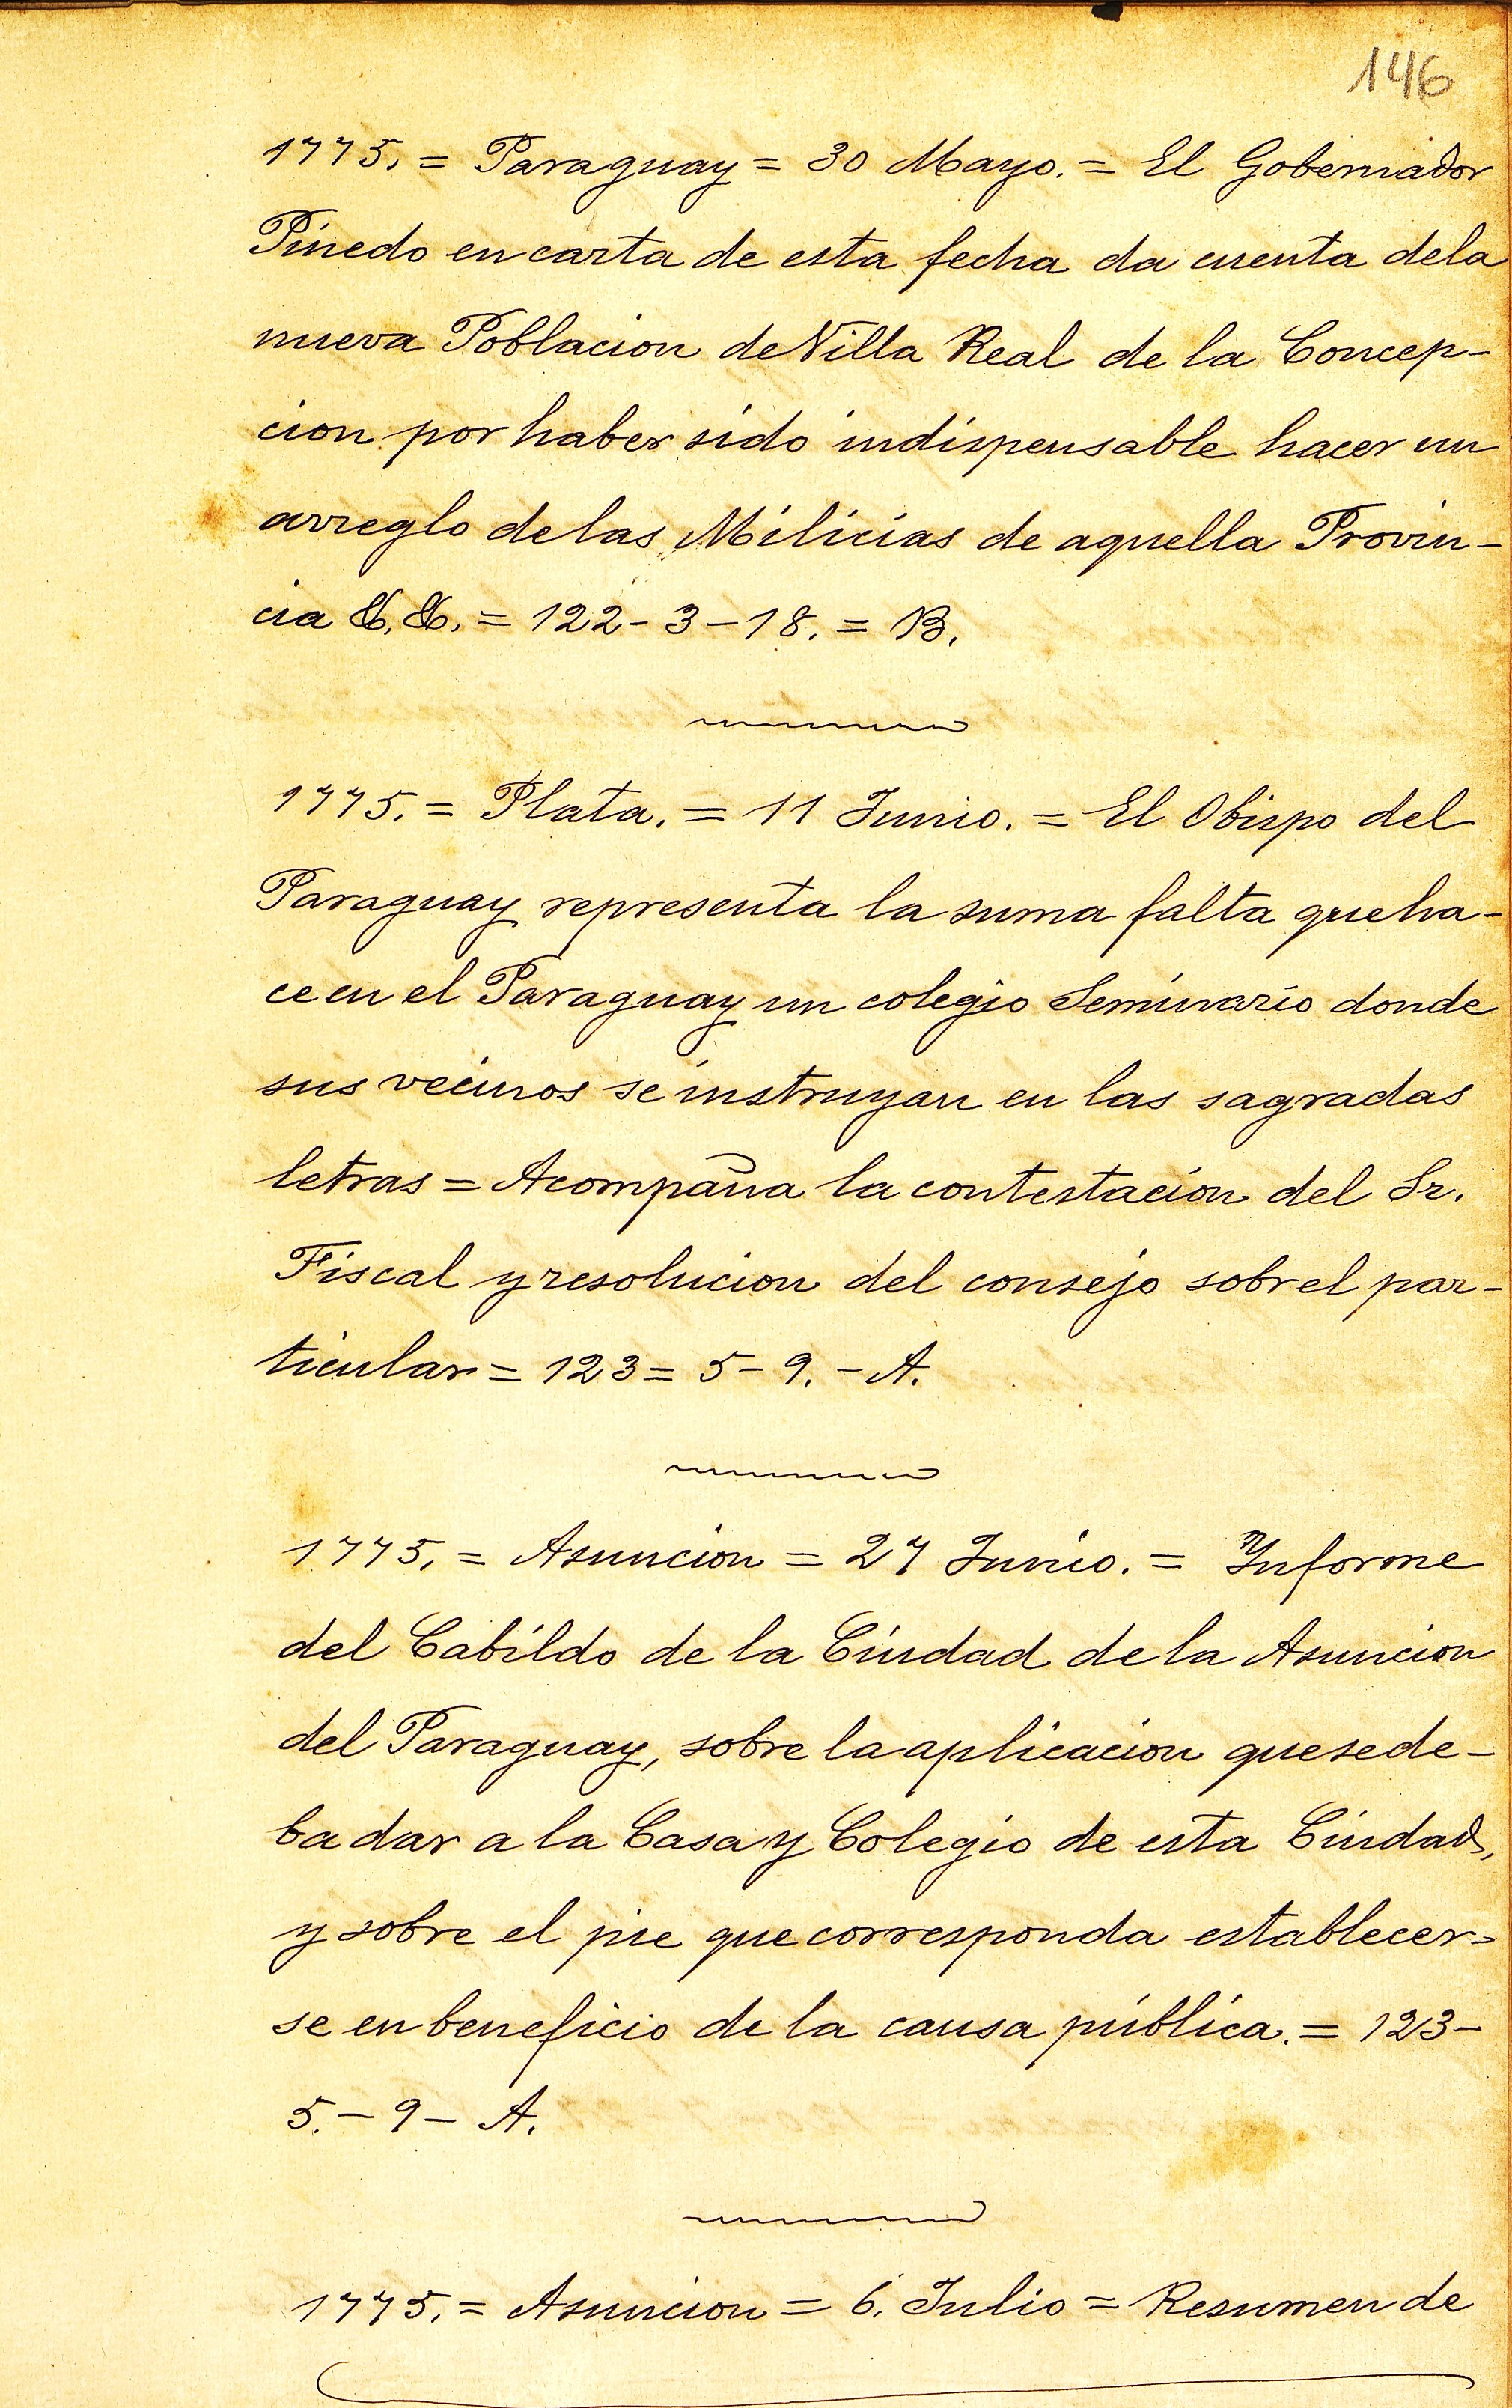 146
1775. = Paraguay = 30 Mayo. = El Gobernador
Pinedo en carta de esta fecha da cuenta dela
nueva Poblacion de Villa Real de la Concep-
cion por haber sido indispensable hacer un
arreglo de las Milicias de aquella Provin-
cia &. &. = 122 - 3 - 18. = B.
1775. = Plata. = 11 Junio. = El Obispo del
Paraguay representa la suma falta que ha-
ce en el Paraguay un colegio Seminario donde
sus vecinos se instruyan en las sagradas
letras = Acompaña la contestacion del Sr.
Fiscal y resolucion del consejo sobrel par-
ticular = 123 = 5 - 9. - A.
1775. = Asuncion = 27 Junio. = Informe
del Cabildo de la Ciudad de la Asuncion
del Paraguay, sobre la aplicacion que se de-
ba dar a la Casa y Colegio de esta Ciudad,
y sobre el pie que corresponda establecer=
se en beneficio de la causa pública. = 123 -
5. - 9 - A.
1775. = Asuncion = 6. Julio = Resumen de